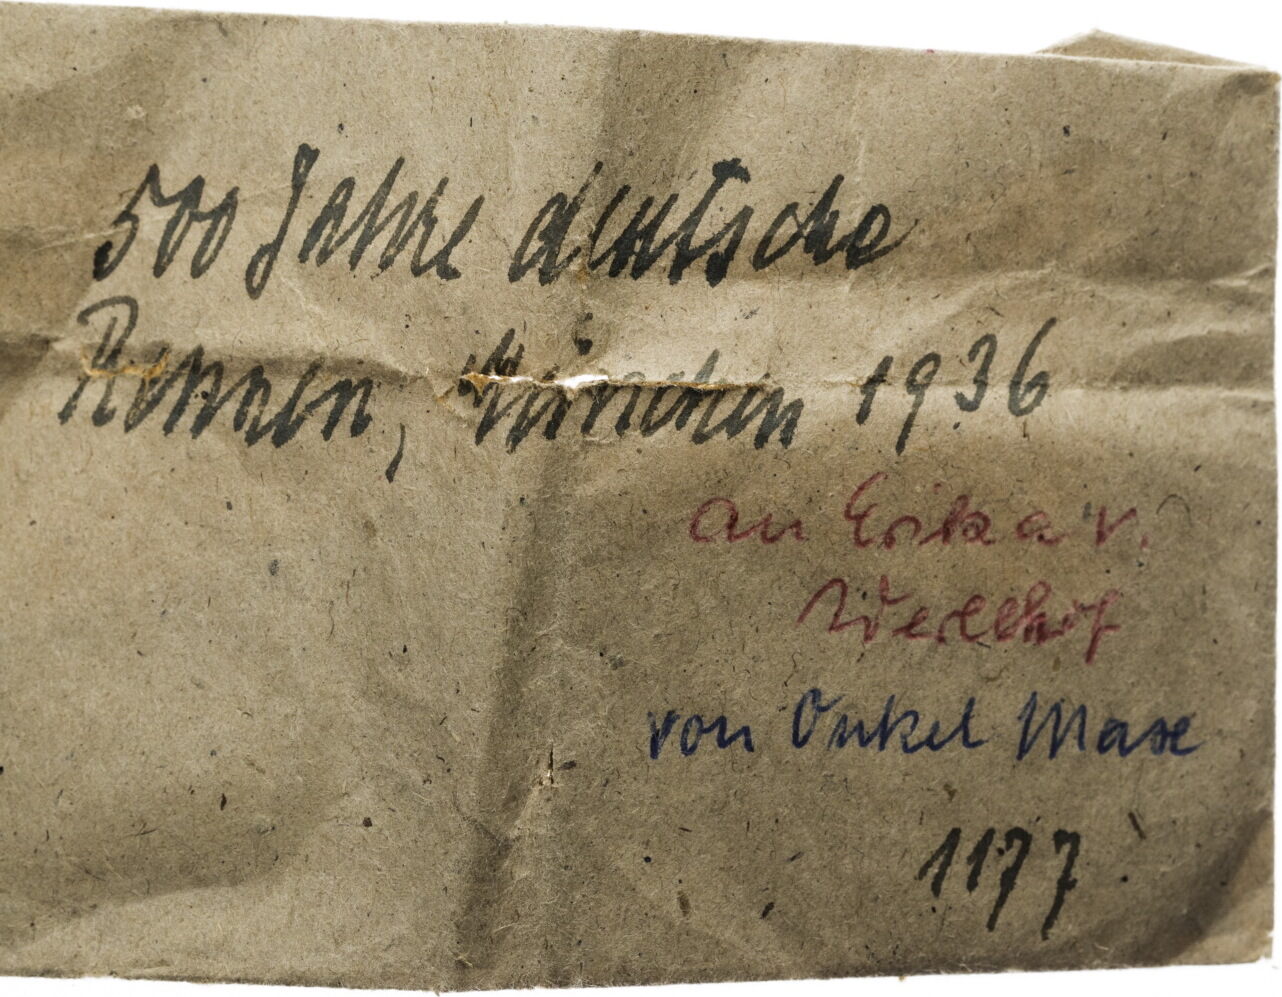 500 Jahre deutsche
Rennen, München 1936
an Erika v.
Werlhof
von Onkel Maxe
1177